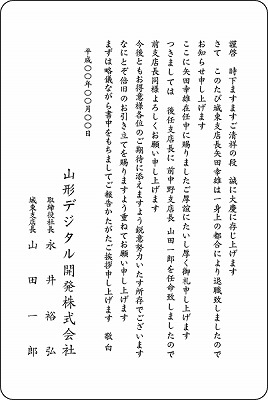 謹啓　時下ますますご清祥の段　誠に大慶に存じ上げます
さて　このたび城東支店長矢田幸雄は一身上の都合により退職致しましたので
お知らせ申し上げます
ここに矢田幸雄在任中に賜りましたご厚誼にたいし厚く御礼申し上げます
つきましては　後任支店長に前中野支店長　山田一郎を任命致しましたので
前支店長同様よろしくお願い申し上げます
今後ともお得意様各位のご期待に添えますよう鋭意努力いたす所存でございます
なにとぞ倍旧のお引き立てを賜りますよう重ねてお願い申し上げます
まずは略儀ながら書中をもちましてご報告かたがたご挨拶申し上げます　敬白
平成〇〇年〇〇月〇〇日
山形デジタル開発株式会社
取締役社長　永井裕弘
城東支店長　山田一郎